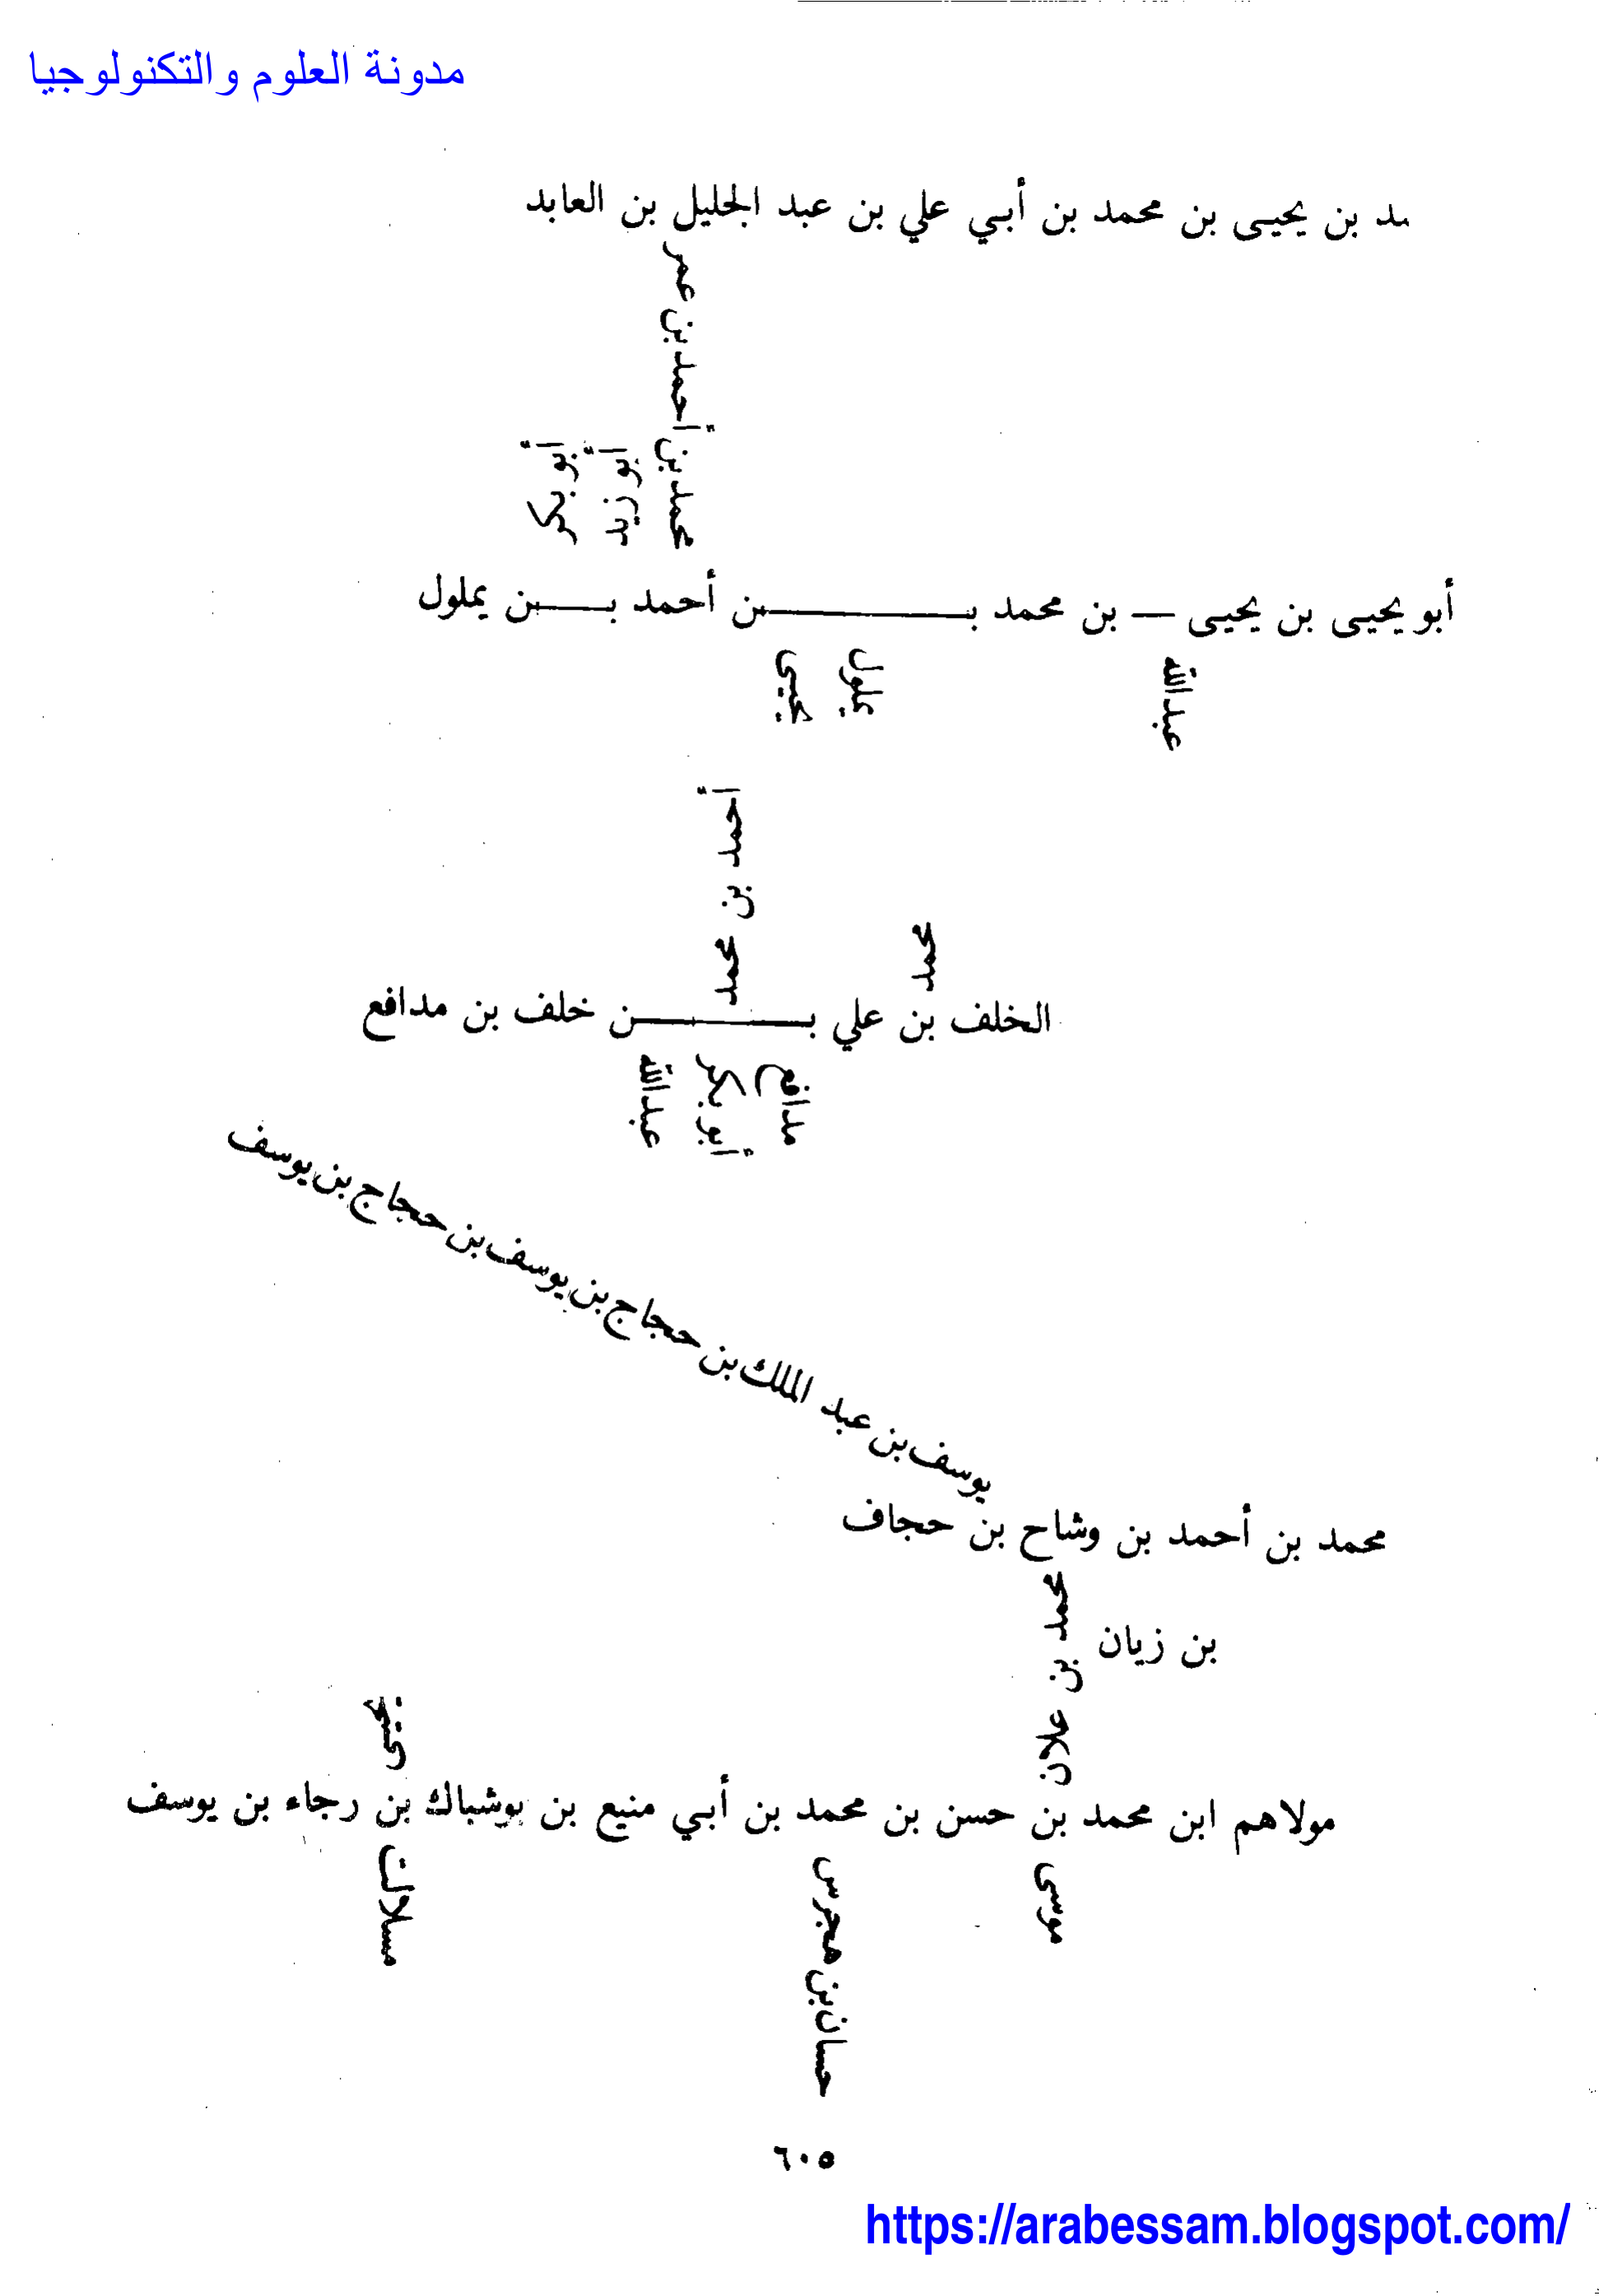 مدونة العلوم والتكنولوجيا
مد بن يحيى بن محمد بن أبي علي بن عبد الجليل بن العابد
محمد بن أحمد بن عمر
أخوه يزيد
أخوه بكر
أبو يحيى بن يحيى — بن محمد بـــن أحمد بـــن يملول
عبدالله
يملول
يحيى
محمد بن أحمد
محمد
الخلف بن علي بـــن خلف بن مدافع
مدافع
أبو بكر
عبدالله
يوسف بن عبد الملك بن حجاج بن يوسف بن حجاج بن يوسف
محمد بن أحمد بن وشاح بن حجاف
بن زيان
محمد بن علان
مولاهم ابن محمد بن حسن بن محمد بن أبي منيع بن بوشباك بن رجاء بن يوسف
موسى
حسان بن هجرس
مسلات
٦٠٥
https://arabessam.blogspot.com/